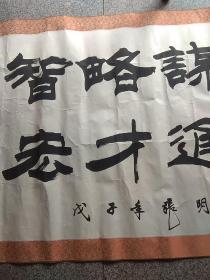 智略謀
宏才
戊子年張明